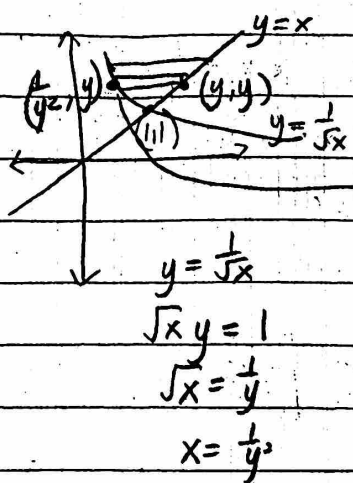 y=x
(1/y², y)
(y, y)
y = 1/√x
(1,1)
y = 1/√x
√x y = 1
√x = 1/y
x = 1/y²